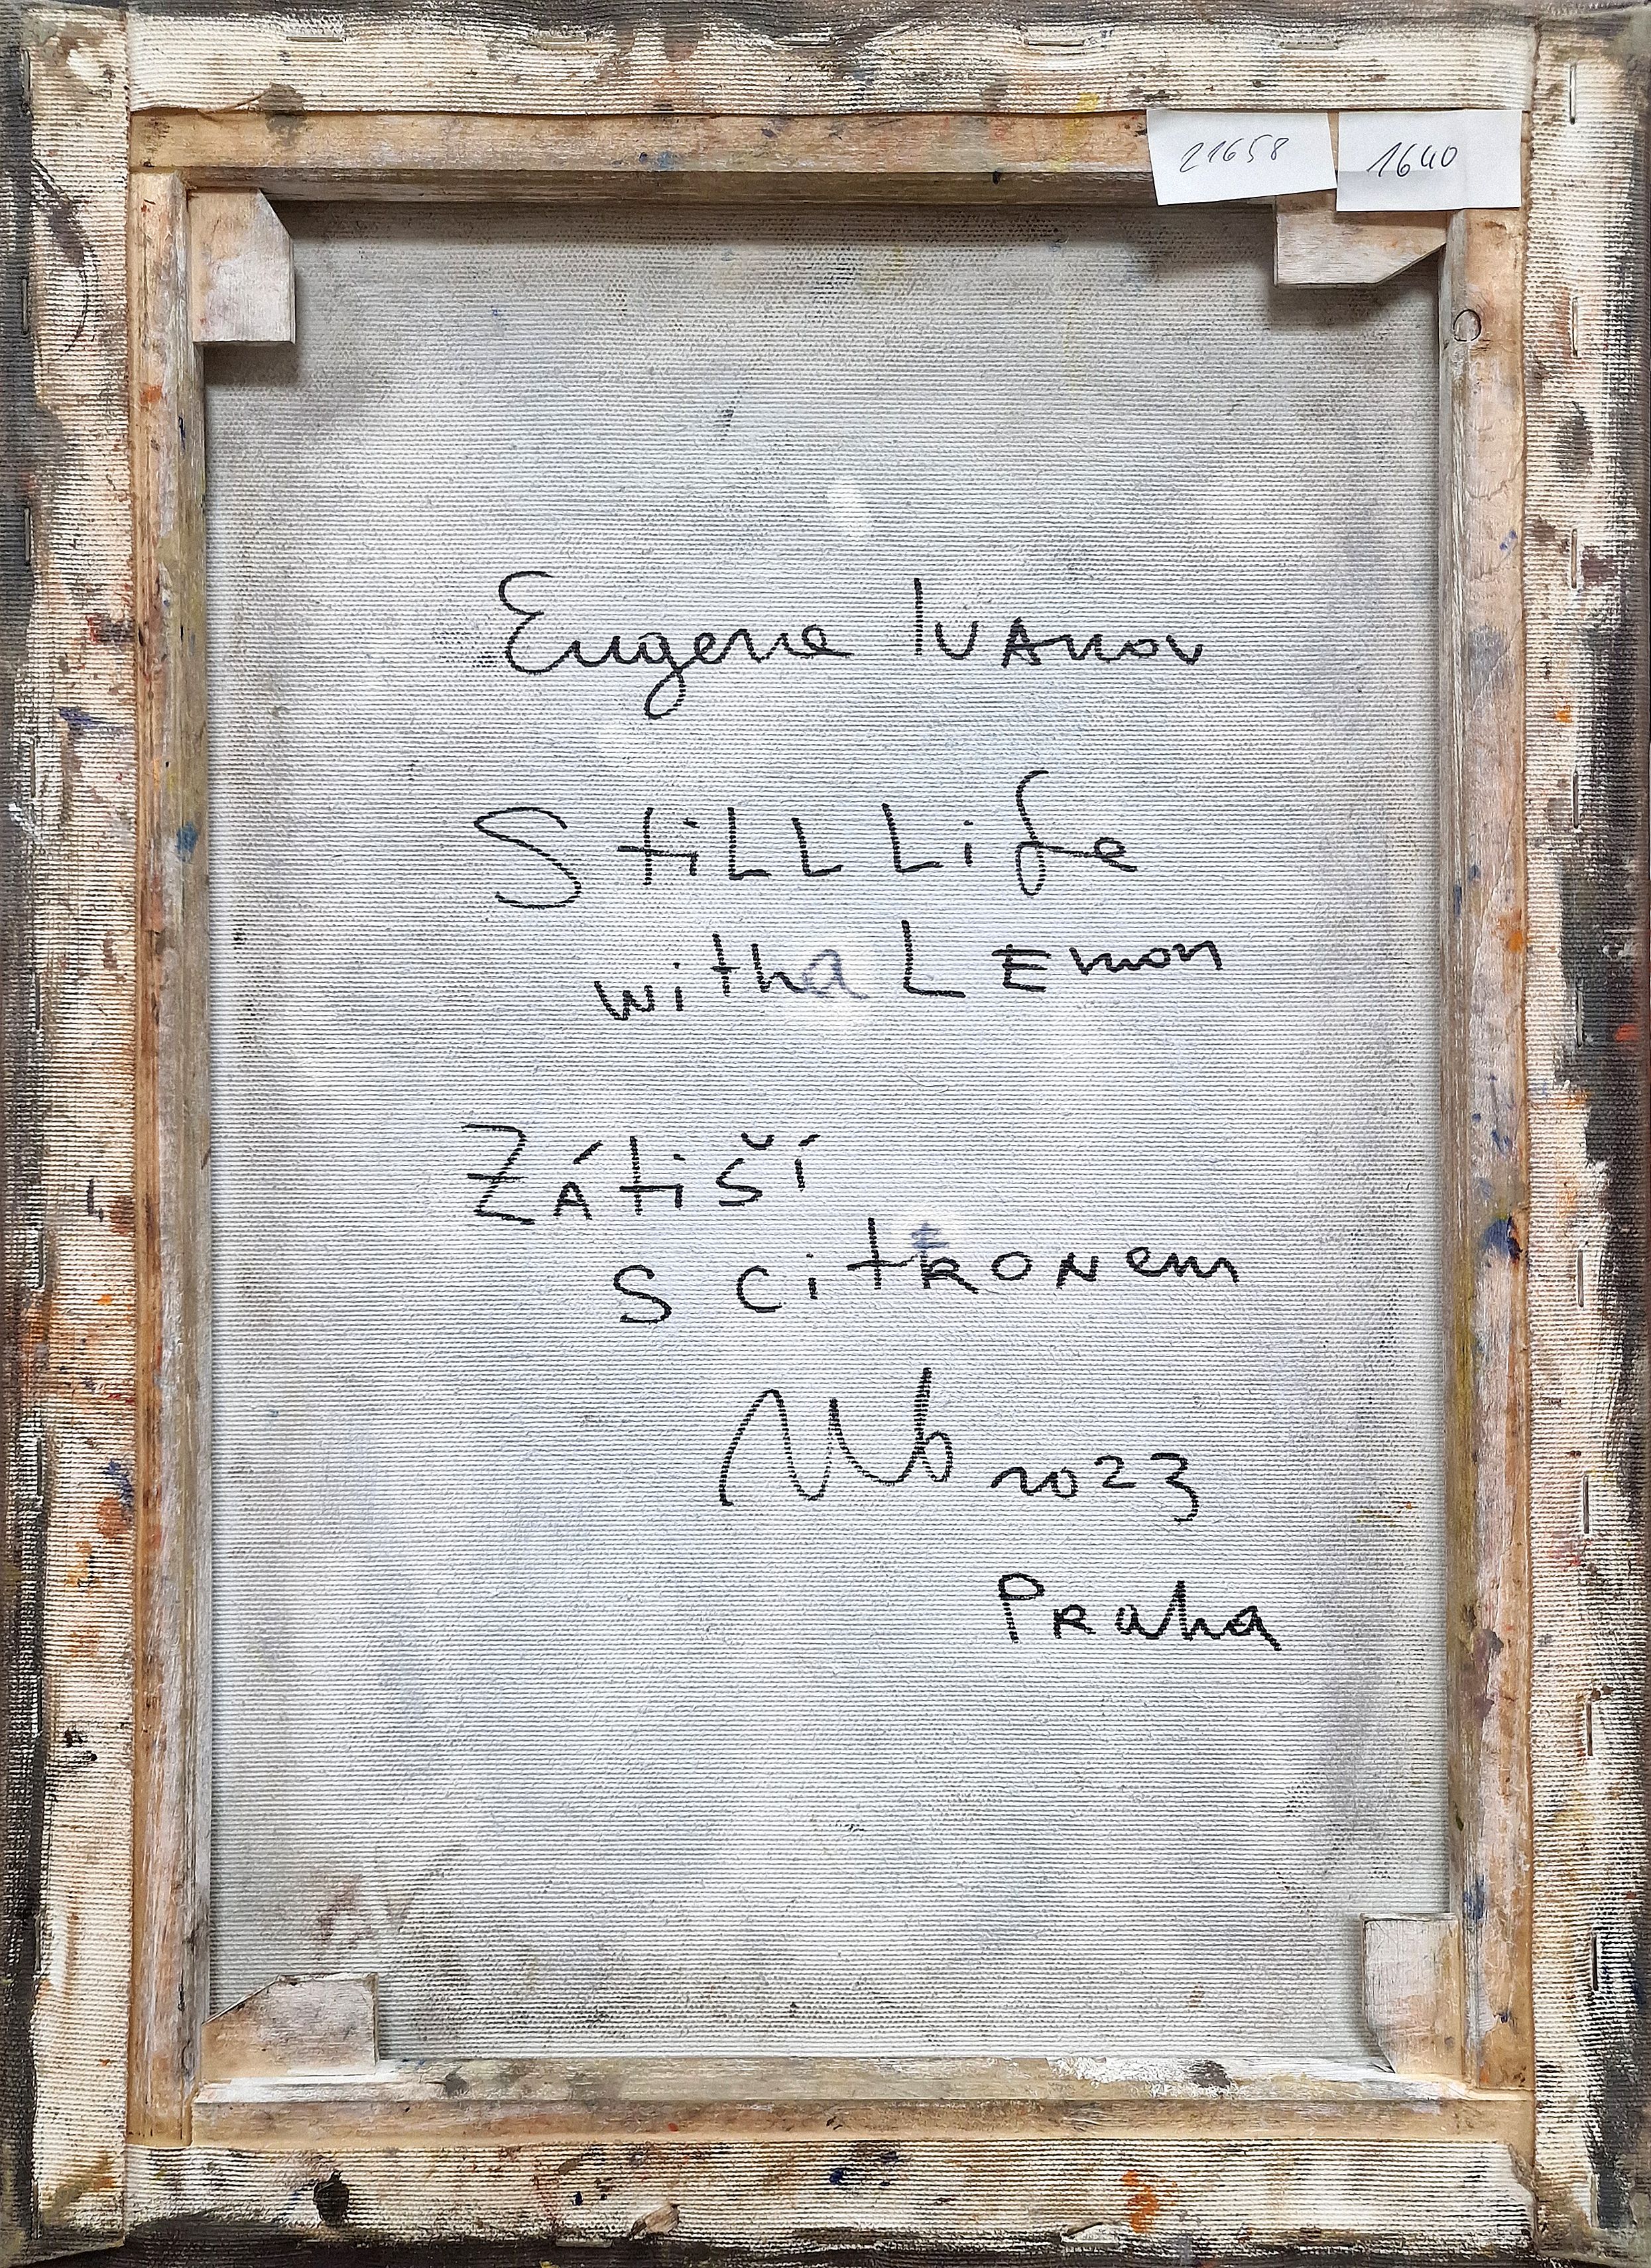 21658
1640
Eugene Ivanov
Still Life
with a Lemon
Zátiší
s citronem
2023
Praha